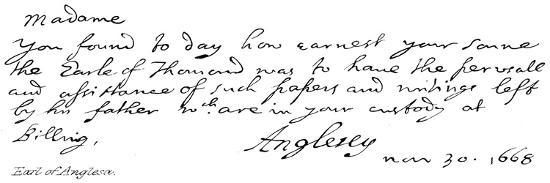 Madame
You found to day how earnest your sonne
the Earle of Thomond was to have the perusall
and assistance of such papers and writings left
by his father wch. are in your custody at
Billing,
Anglesey
nov 30. 1668
Earl of Anglesa.